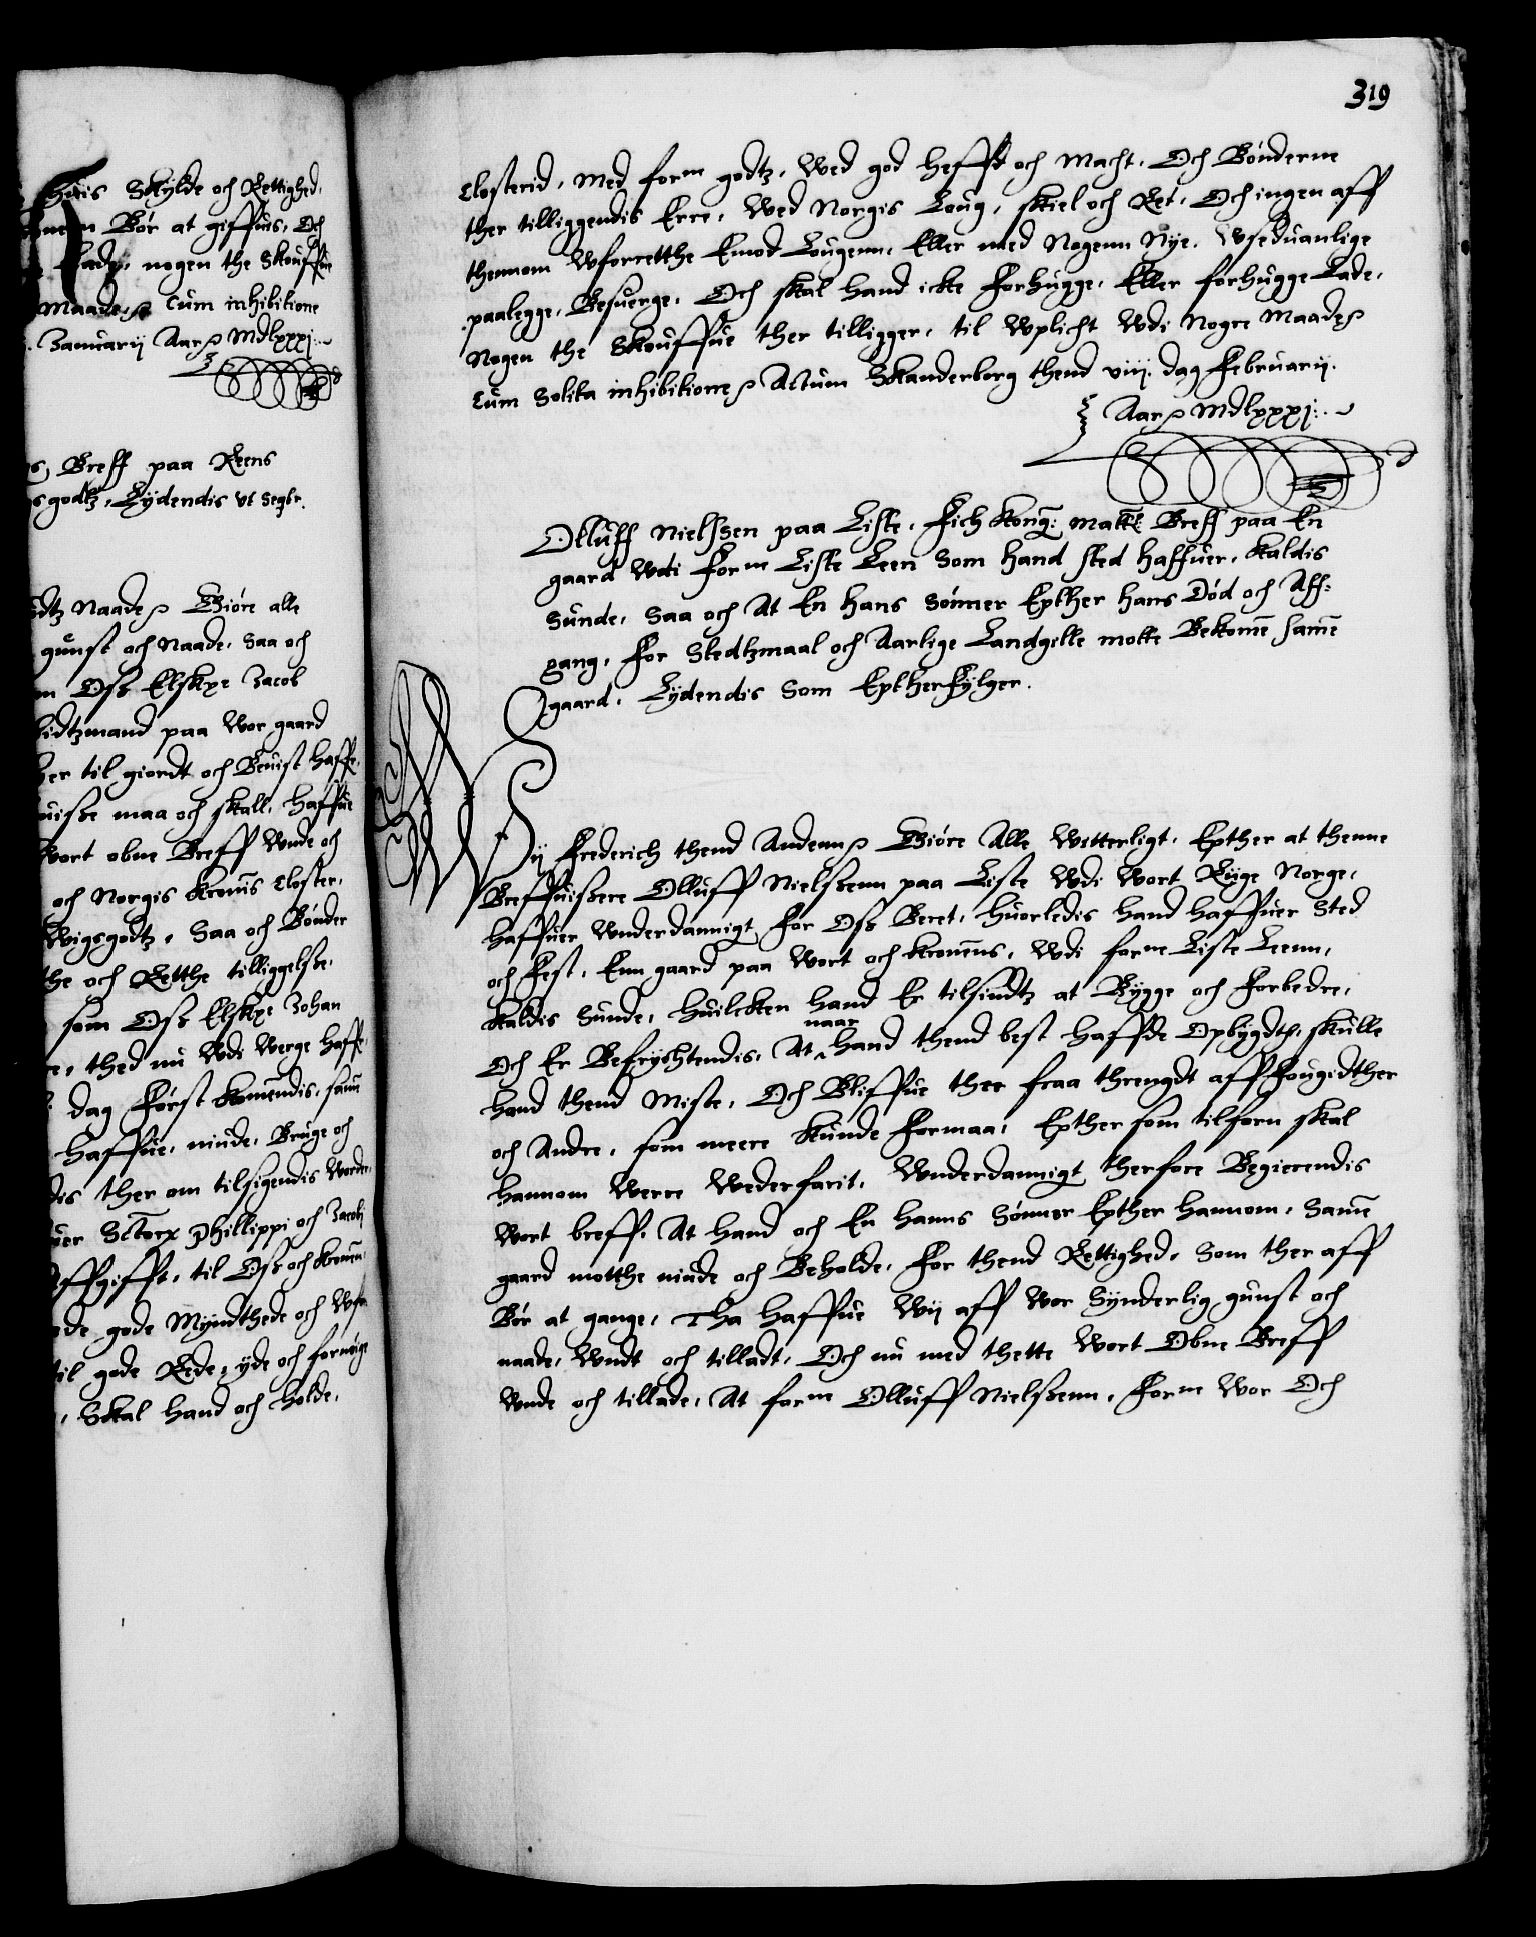 horis Skylde och Rettighed,
Bør at giffuis, Och
Lade, nogen the Skouffue
Maade, Cum inhibitione
Januarij Aar Mdlxxxj
Breff paa Reens
godtz, Lydendis vt seqtr.
Naade Giøre alle
gunst och Naade, Saa och
Oss Elsktpe Jacob
paa Wor gaard
til giordt och Beuist haffr
maa och skall, Haffue
wort obne Breff Unde och
och Norgis Kronis Closter,
Saa och Bønder
och Retthe tilliggelsse,
som Oss Elsktpe Johan
thed nu Udi Werge Haffr
dag Først Komendis, samme
Haffue, niude, Bruge och
ther om tilsigendis Worder
Sctorx Phillippi och Jacobj
Affgifft, til Oss och Kronen
gode Myndthede och
til gode Rede, yde och fornøge
Skal Hand och Holde,
319
Closterid, Med forne godtz, Wed god Heffd och Macht, Och Bønderne
ther tilliggendis Erre, Wed Norgis Loug, skiel och Ret, Och ingen aff
thennom Wforretthe Emod Lougenn, Eller med Nogenn Nye, Wseduanlige
paalegge, Besuerge, Och skal Hand icke Forhugge, Eller forhugge Lade,
Nogen the Skouffue ther tilligger, til Wplicht Udi Nogre Maade
Cum Solita inhibitione Actum Skanderborg thend viij. dag Februarij.
Aar Mdlxxxj
Olluff Nielssen paa Liste, Fich Kong: Matt: Breff paa En
gaard Udi Forne Liste Leen Som Hand sted Haffuer, Kaldis
Sunde, Saa och At En hans Sønner Epther hans Død och Aff-
gang, For Stedtzmaal och Aarlige Landgille motte Bekome same
gaard, Lydendis Som Eptherfylger.
Wij Frederich thend Andenn Giøre Alle Witterligt, Epther at thenne
Breffuissere Olluff Nielssenn paa Liste Udi Wort Rige Norge,
Haffuer Underdannigt For Oss Beret, Huorledis Hand Haffuer Sted
och Fest, Enn gaard paa Wort och Kronens, Udi forne Liste Leenn,
Kaldis Sunde, Huilcken Hand Er tilsindtz at Bygge och Forbedre,
naar
Och Er Befrychtendis, At Hand thend best Haffde Opbygdth, skulle
Hand thend Miste, Och Bliffue ther fraa threngdt aff Fougidther
och Andre, som meere Kunde Formaa, Epther som tilforn skal
Hannom Werre Wederfarit, Underdannigt therfore Begierendis
Wort breff, At Hand och En Hanns Sønner Epther Hannom, Same
gaard motthe niude och Beholde, For thend Rettighed, Som ther aff
Bør at gange, Tha Haffue Wij aff Wor Synderlig gunst och
naade, Undt och tilladt, Och nu med thette Wort Obne Breff
Unde och tillade, At forne Olluff Nielssenn, Forne Wor Och